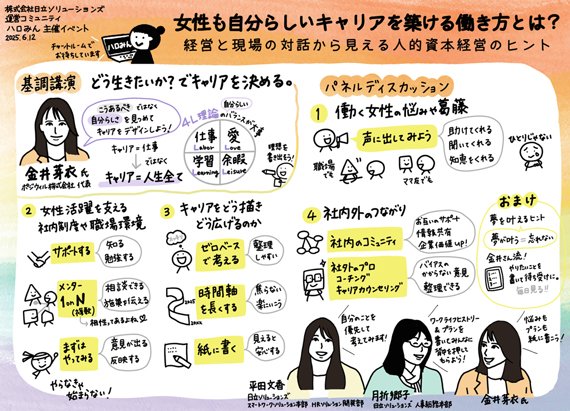 株式会社日立ソリューションズ
運営コミュニティ
ハロみん 主催イベント
2025.6.12
チャットルームで
お待ちしています
ハロみん
女性も自分らしいキャリアを築ける働き方とは?
経営と現場の対話から見える人的資本経営のヒント
基調講演
どう生きたいか?でキャリアを決める。
こうあるべき ではなく
自分らしさ を見つめて
キャリアをデザインしよう!
キャリア=仕事
ではなく
キャリア=人生全て
金井芽衣氏
ポジウィル株式会社 代表
4L理論
自分らしい
のバランスが大事
仕事
Labor
愛
Love
学習
Learning
余暇
Leisure
理想を
書き出そう!
パネルディスカッション
1 働く女性の悩みや葛藤
声に出してみよう
助けてくれる
聞いてくれる
知恵をくれる
ひとりじゃない
職場でも
ママ友でも
2 女性活躍を支える
社内制度や職場環境
サポートする
知る
勉強する
メンター
1 on N
(複数)
相談できる
施策が伝える
相性ってあるよね
まずは
やってみる
意見が出る
反映する
やらなきゃ
始まらない!
3 キャリアをどう描き
どう広げるのか
ゼロベース
で考える
整理
しやすい
時間軸
を長くする
焦らない
楽にいこう
紙に書く
見えると
安心する
4 社内外のつながり
社内のコミュニティ
お互いのサポート
情報共有
企業価値up!
社外のプロ
コーチング
キャリアカウンセリング
バイアスの
かからない意見
整理できる
おまけ
夢を叶えるヒント
夢が叶う=忘れない
金井さん流!
やりたいことを
書いて待ち受けに。
毎日見る!!
自分のことを
優先して
考えてみます!
平田文香
日立ソリューションズ
スマートワークソリューション本部 HRソリューション開発部
ワークライフヒストリー
&プランを
書いてみんなに
背中を押して
もらおう!
月折郷子
日立ソリューションズ 人事総務本部
悩みも
プランも
紙に書こう!
金井芽衣氏